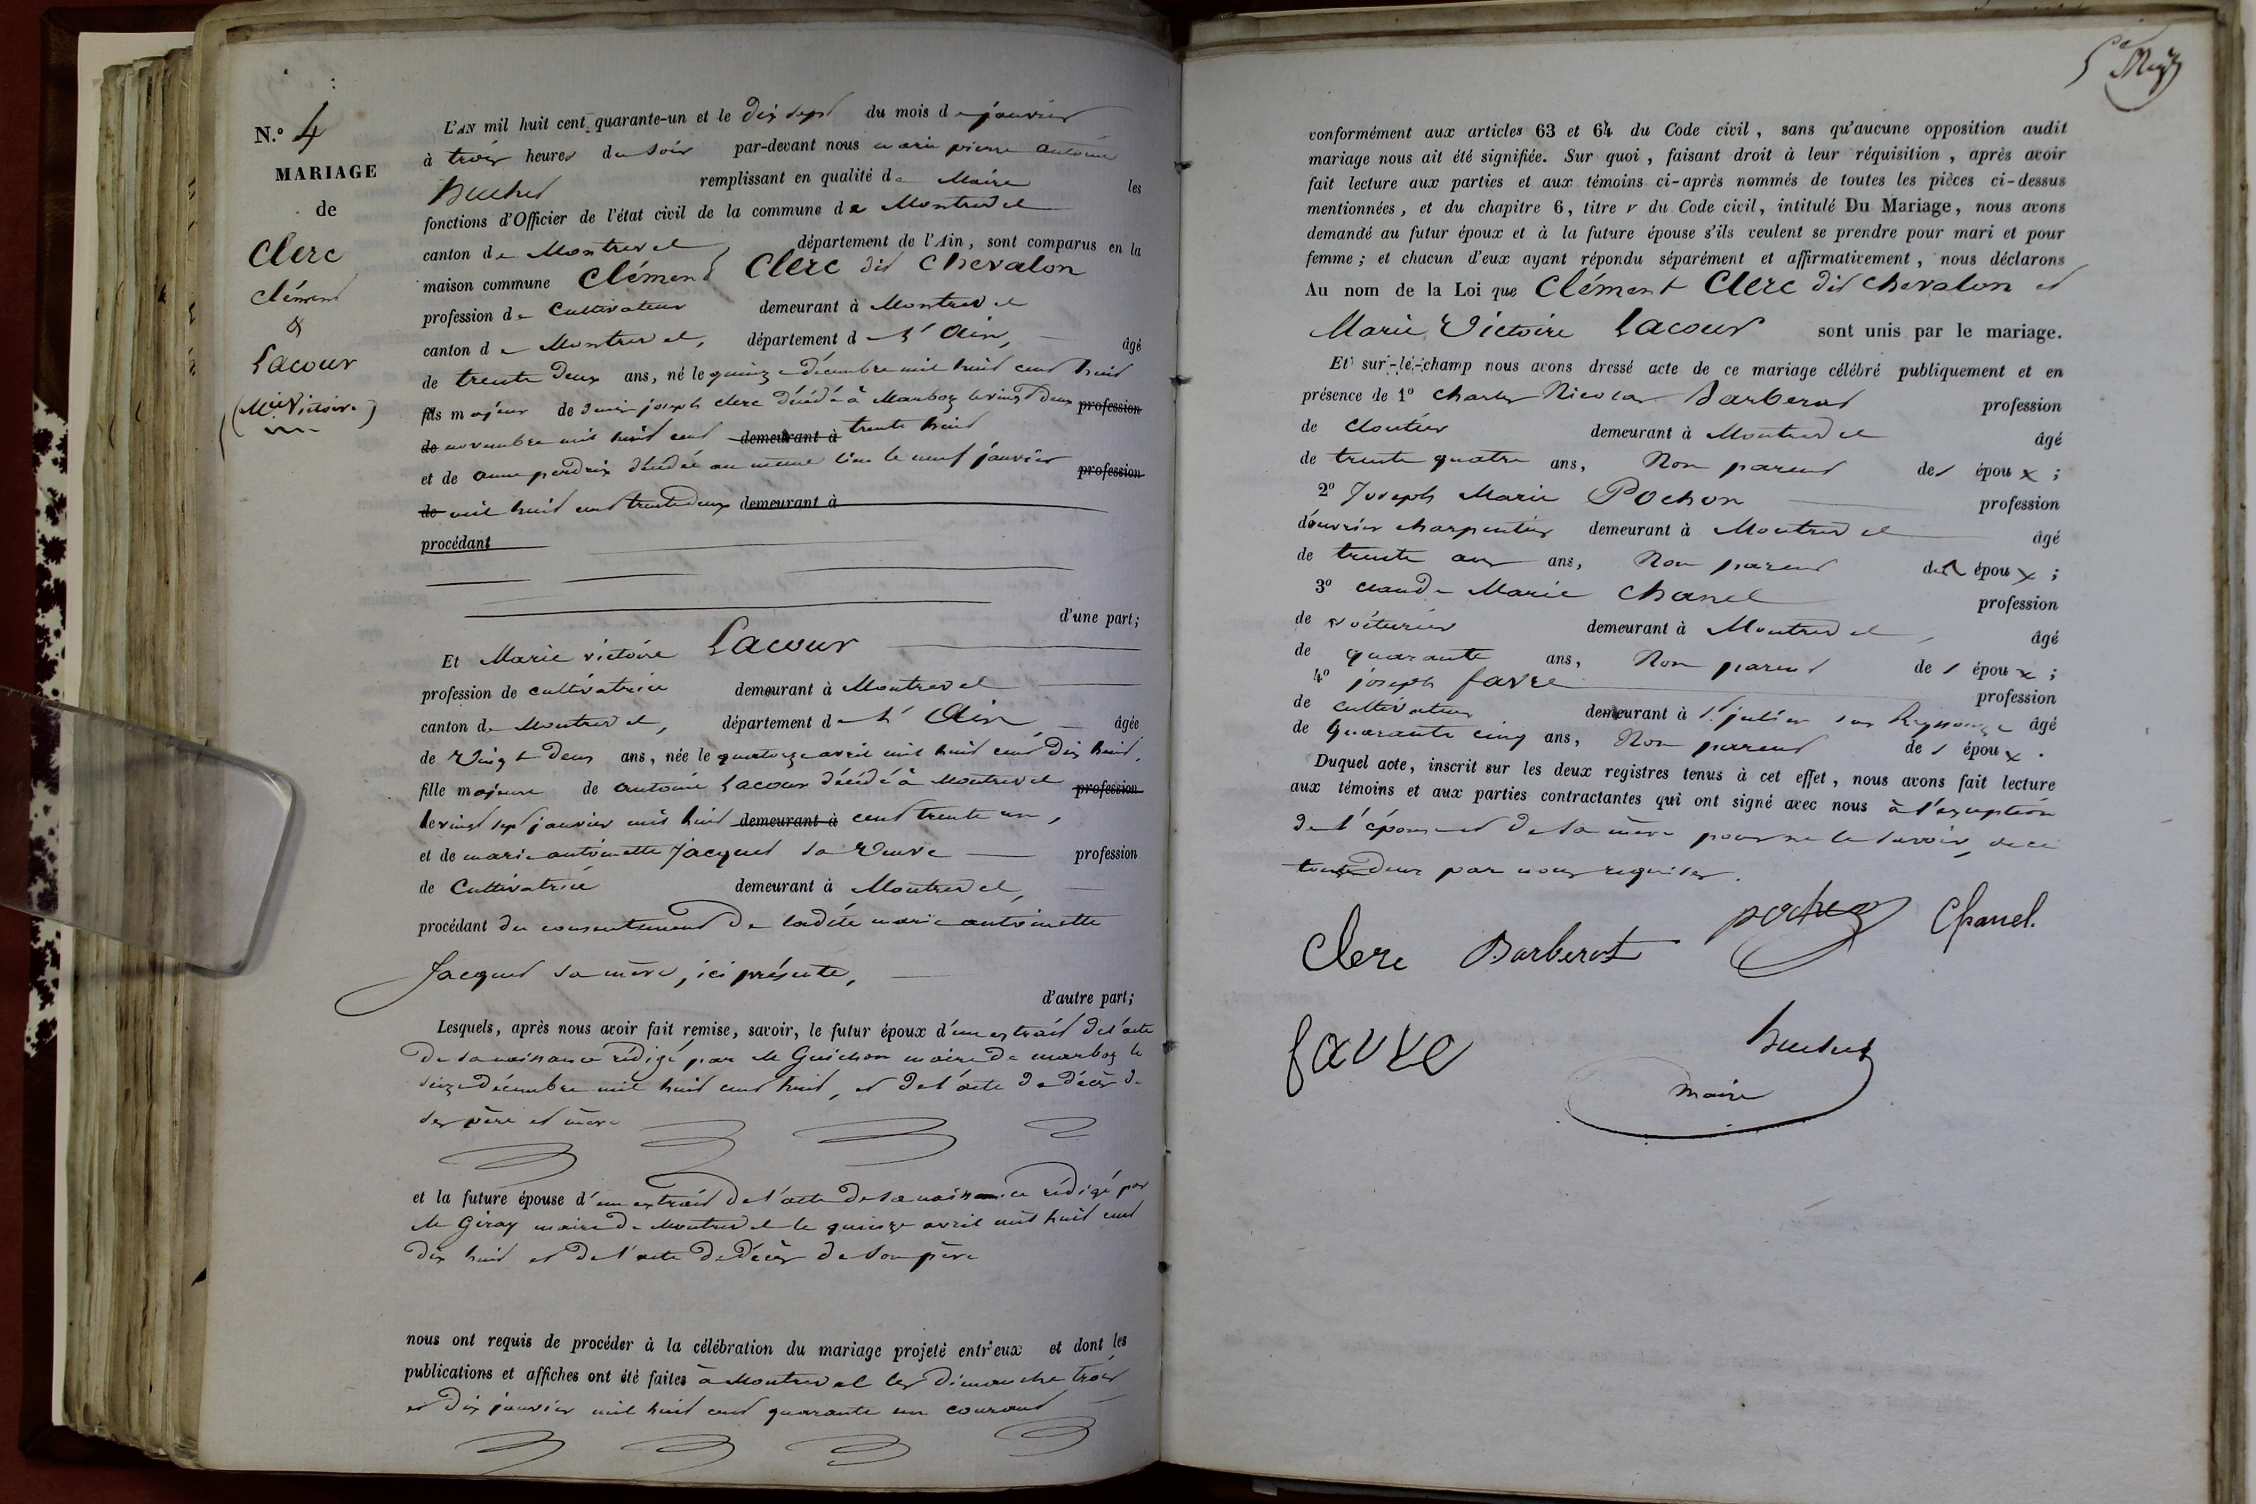 N.º 4
MARIAGE
de
Clerc
Clément
&
Lacour
(Mie Victoire)
L'AN mil huit cent quarante-un et le dix sept du mois de janvier
à trois heures du soir par-devant nous marie pierre antoine
Buchet remplissant en qualité de Maire les
fonctions d'Officier de l'état civil de la commune de Montrevel
canton de Montrevel, département de l'Ain, sont comparus en la
maison commune Clément Clerc dit Chevalon
profession de Cultivateur demeurant à Montrevel
canton de Montrevel, département de l'Ain, âgé
de trente deux ans, né le quinze décembre mil huit cent huit
fils majeur de joseph clerc décédé à Marboz le vingt deux profession
de novembre mil huit cent demeurant à trente huit
et de anne perdrix décédée au même lieu le neuf janvier profession
de mil huit cent trente deux demeurant à
procédant
d'une part;
Et Marie victoire Lacour
profession de cultivatrice demeurant à Montrevel
canton de Montrevel, département de l'Ain âgée
de Vingt deux ans, née le quatorze avril mil huit cent dix huit,
fille majeure de antoine Lacour décédé à Montrevel profession
le vingt sept janvier mil huit demeurant à cent trente un,
et de marie antoinette Jacquet sa Veuve profession
de Cultivatrice demeurant à Montrevel,
procédant du consentement de ladite marie antoinette
Jacquet sa mère, ici présente,
d'autre part;
Lesquels, après nous avoir fait remise, savoir, le futur époux d'un extrait de l'acte
de sa naissance rédigé par M Guichon maire de marboz le
seize décembre mil huit cent huit, et de l'acte de décès de
ses père et mère
et la future épouse d'un extrait de l'acte de sa naissance rédigé par
M Giroy maire de Montrevel le quinze avril mil huit cent
dix huit et de l'acte de décès de son père
nous ont requis de procéder à la célébration du mariage projeté entr'eux et dont les
publications et affiches ont été faites à Montrevel les dimanche trois
et dix janvier mil huit cent quarante un courant
conformément aux articles 63 et 64 du Code civil, sans qu'aucune opposition audit
mariage nous ait été signifiée. Sur quoi, faisant droit à leur réquisition, après avoir
fait lecture aux parties et aux témoins ci-après nommés de toutes les pièces ci-dessus
mentionnées, et du chapitre 6, titre v du Code civil, intitulé Du Mariage, nous avons
demandé au futur époux et à la future épouse s'ils veulent se prendre pour mari et pour
femme; et chacun d'eux ayant répondu séparément et affirmativement, nous déclarons
Au nom de la Loi que Clément Clerc dit chevalon et
Marie Victoire Lacour sont unis par le mariage.
Et sur-le-champ nous avons dressé acte de ce mariage célébré publiquement et en
présence de 1º Charles Nicolas Barberot profession
de Cloutier demeurant à Montrevel âgé
de trente quatre ans, Non parent des époux;
2º Joseph Marie Pochon profession
d'ouvrier charpentier demeurant à Montrevel âgé
de trente ans ans, Non parent des époux;
3º claude Marie Chanel profession
de voiturier demeurant à Montrevel, âgé
de quarante ans, Non parent des époux;
4º joseph favre profession
de cultivateur demeurant à St. julien sur Reyssouze âgé
de quarante cinq ans, Non parent des époux.
Duquel acte, inscrit sur les deux registres tenus à cet effet, nous avons fait lecture
aux témoins et aux parties contractantes qui ont signé avec nous à l'exception
de l'épouse et de sa mère pour ne le savoir, de ce
toutes deux par nous requises.
Clerc Barberot pochon Chanel.
favre Buchet
maire